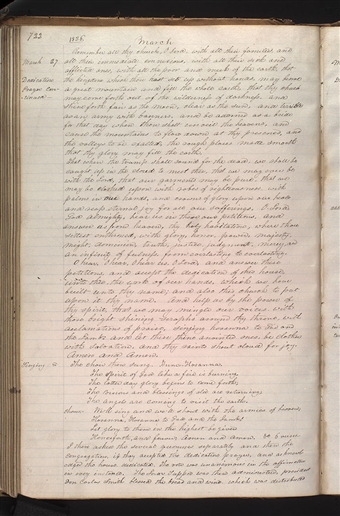 722
1836
March
March 27
Dedication Prayer Continued
Remember all thy church, O Lord, with all their families, and
all their immediate connexions, with all their sick and
afflicted ones, with all the poor and meek of the earth, that
the kingdom which thou hast set up without hands, may become
a great mountain and fill the whole earth, that thy church
may come forth out of the wilderness of darkness, and
shine forth fair as the moon, clear as the sun, and terrible
as an army with banners, and be adorned as a bride
for that day when thou shalt unveil the heavens, and
cause the mountains to flow down at thy presence, and
the valleys to be exalted, the rough places made smooth
that thy glory may fill the earth.
that when the trump shall sound for the dead, we shall be
caught up in the cloud to meet thee, that we may ever be
with the Lord, that our garments may be pure, that we
may be clothed upon with robes of righteousness, with
palms in our hands, and crowns of glory upon our heads
and reap eternal joy for all our sufferings. O Lord
God Almighty, hear us in these our petitions, and
answer us from heaven, thy holy habitation, where thou
sittest enthroned, with glory, honor, power, majesty,
might, dominion, truth, justice, judgment, mercy and
an infinity of fulness from everlasting to everlasting.
O hear, O hear, O hear us, O Lord, and answer these
petitions, and accept the dedication of this house,
unto thee, the work of our hands, which we have
built unto thy name; and also this church to put
upon it thy name. And help us by the power of
thy spirit, that we may mingle our voices with
those bright shining seraphs around thy throne with
acclamations of praise, singing hosanna to God and
the Lamb; and let these thine anointed ones be clothed
with salvation, and thy saints shout aloud for joy.
Amen and Amen.
Singing
The choir then sung. Tune Hosanna.
The Spirit of God like a fire is burning,
The latter day glory begins to come forth,
The visions and blessings of old are returning
The angels are coming to visit the earth.
Chorus We'll sing and we'll shout with the armies of heaven
Hosanna, Hosanna to God and the Lamb;
Let glory to them in the highest be given
Henceforth and forever: Amen and Amen.
I then asked the several quorums separately and then the
congregation if they accepted the dedication prayer, and acknowl-
edged the house dedicated. The vote was unanimous in the affirmative
in every instance. The Lord's Supper was then administered,
Don Carlos Smith blessed the bread and wine which was distributed